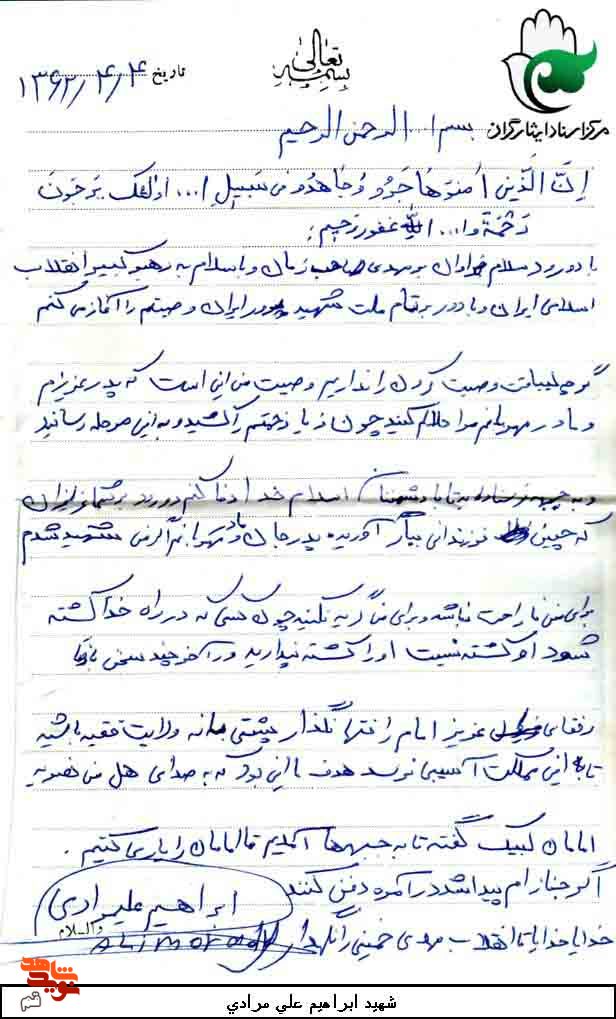 بسمه تعالی
تاریخ ۱۳۶۲/۴/۴
مرکز اسناد ایثارگران
بسم ا... الرحمن الرحیم
اِنَّ الَّذینَ اٰمنوَهاجَرو وَجاهدُو فی سَبیلِ ا... اولئک یَرجونَ
رَحْمَةَ ا... اللهُ غفور رَحیم:
با درود سلام فراوان بر مهدی صاحب زمان و با سلام به رهبر کبیر انقلاب
اسلامی ایران و با درود بر تمام ملت شهید پرور ایران وصیتم را آغاز می کنم
گرچه لیاقت وصیت کردن را نداریم وصیت من این است که پدر عزیزم
و مادر مهربانم مرا حلالم کنید چون زیاد زحمتم را کشیدو به این مرحله رسانید
و به جبهه فرستاده تا با دشمنان اسلام خدا دفا کنم درود بر شما عزیزان
که چنین فرزندانی ببار آوریده پدر جان و مادر مهربانم اگر من شهید شدم
برای من ناراحت نباشد و برای من گریه نکنید چون کسی که در راه خدا کشته
شود او کشته نیست او را کشته نپدارید و در آخر چند سخن با
رفقای عزیز امام را تنها نگذار پشتی بانه ولایت فقیه باشید
تا به این مملکت آسیبی نرسد هدف ما این بود که به صدای هل من
امامان لبیک گفته تا به جبهها آمدیم تا امامان را یاری کنیم.
اگر جنازه ام پیدا شد در آمره دفن کنند
ابراهیم علیمرادی
خدایا خدایا تا انقلاب مهدی خمینی را نگهدار
والسلام
Alimoradi
شاهد
نوید
قم
شهید ابراهیم علي مرادي